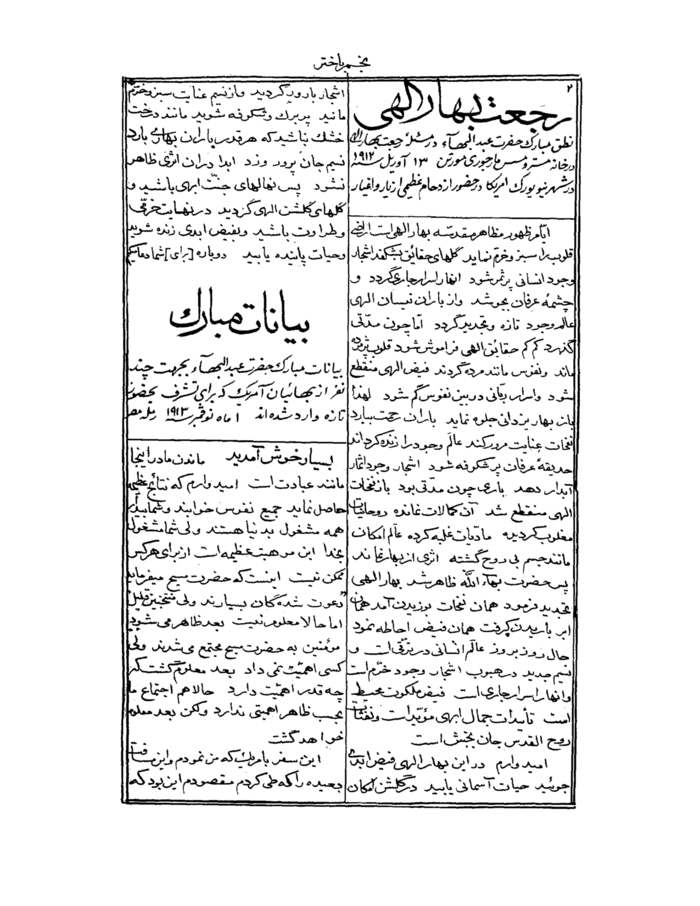 نجم باختر
۲
رجعت بهار الهی
نطق مبارک حضرت عبدالبهاء در مسئلهٔ رجعت بهار الهی
در خانه مستر و مسس مارجوری مورتن ۱۳ آوریل سنه ۱۹۱۲
در شهر نیویورک امریکا در حضور ازدحام عظیمی از یار و اغیار
ایام ظهور مظاهر مقدسه بهار الهی است اراضی
قلوب را سبز و خرم نماید گلهای حقائق بشکفد اشجار
وجود انسانی پر ثمر شود انهار اسرار جاری گردد و
چشمهٔ عرفان بجوشد و از باران نیسان الهی
عالم وجود تازه و تجدید گردد اما چون مدتی
گذرد کم کم حقائق الهی فراموش شود قلوب پژمرده
ماند و نفوس مانند مرده گردند فیض الهی منقطع
شود و اسرار ربانی در بین نفوس گم شود لهذا
باز بهار یزدانی جلوه نماید باران رحمت ببارد
نفحات عنایت مرور کند عالم وجود را زنده گرداند
حدیقهٔ عرفان پر شکوفه شود اشجار وجود اثمار
آبدار دهد باری چون مدتی بود باز نفحات
الهی منقطع شد آن کمالات نمانده روحانیات
مغلوب گردیده مادیات غلبه کرده عالم امکان
مانند جسم بی روح گشته اثری از بهار نماند
پس حضرت بهاءالله ظاهر شد بهار الهی
تجدید فرمود همان نفحات بوزیدن آمد همان
ابر باریدن گرفت همان فیض احاطه نمود
حال روز بروز عالم انسانی در ترقی است و
نسیم جدید در هبوب اشجار وجود خرم است
و انهار اسرار جاری است فیض ملکوت محیط
است تأییدات جمال ابهی مؤید است و نفثات
روح القدس جان بخش است
امیدوارم در این بهار الهی فیض ابدی
جوئید حیات آسمانی یابید در گلشن امکان
اشجار بارور گردید و از نسیم عنایت سبز و خرم
مانید پر برگ و شکوفه شوید مانند درخت
خشک نباشید که هر قدر باران بهاری بارد
نسیم جان پرور وزد ابدا در ان اثری ظاهر
نشود پس نهالهای جنت ابهی باشید و
گلهای گلشن الهی گردید در نهایت خرمی
و طراوت باشید و بفیض ابدی زنده شوید
و حیات پاینده یابید دوباره [برای] شما دعا میکنم
بیانات مبارک
بیانات مبارک حضرت عبدالبهاء بجهت چند
نفر از بهائیان آمریک که برای تشرف بحضور
تازه وارد شده اند ۱ ماه نوفمبر سنه ۱۹۱۳ رمل مصر
بسیار خوش آمدید ماندن ما در اینجا
مانند عبادت است امیدوارم که نتائج عظیمه
حاصل نماید جمیع نفوس خوابند و شما بیدار
همه مشغول بدنیا هستند ولی شما مشغول
بخدا این موهبت عظیمه است از برای هر کس
ممکن نیست اینست که حضرت مسیح میفرماید
دعوت شده گان بسیارند ولی منتخبین قلیل
اما حالا معلوم نیست بعد ظاهر می شود
مؤمنین به حضرت مسیح مجتمع می شدند ولی
کسی اهمیت نمی داد بعد معلوم گشت که
چه قدر اهمیت دارد حالا هم اجتماع ما
بحسب ظاهر اهمیتی ندارد ولکن بعد معلوم
خواهد گشت
این سفر بامریک که من نمودم و این مسافت
بعیده را که طی کردم مقصودم این بود که